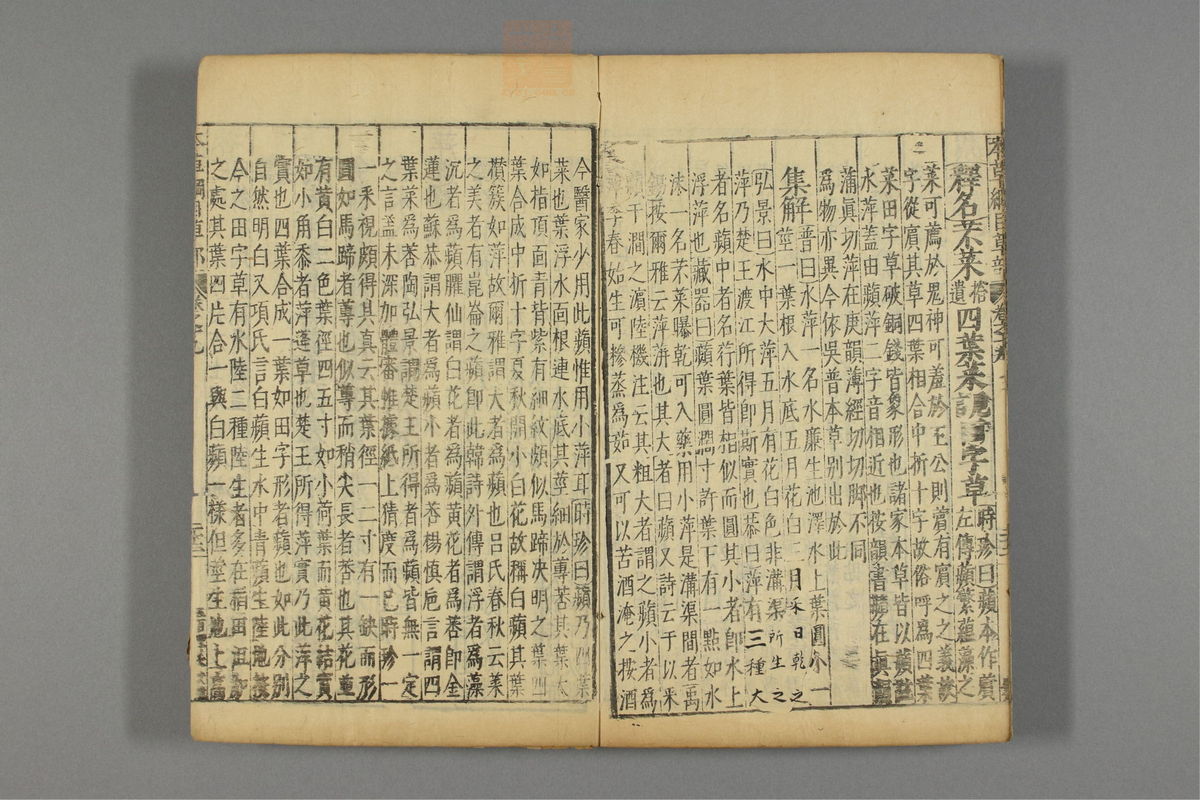 釋名芣菜拾遺四葉菜田字草時珍曰蘋本作薲左傳蘋蘩薀藻之
菜可薦於鬼神可羞於王公則薲有賓之之義故
字從賓其草四葉相合中折十字故俗呼為四葉
菜田字草破銅錢皆象形也諸家本草皆以蘋
水萍蓋由蘋萍二字音相近也按韻書蘋在真
蒲真切萍在庚韻薄經切切脚不同
為物亦異今依吳普本草別出於此
集解普曰水萍一名水廉生池澤水上葉圓小一
莖一葉根入水底五月花白三月采日乾之
弘景曰水中大萍五月有花白色非溝渠所生之
萍乃楚王渡江所得即斯實也恭曰萍有三種大
者名蘋中者名荇葉皆相似而圓其小者即水上
浮萍也藏器曰蘋葉圓闊寸許葉下有一點如水
沫一名芣菜曝乾可入藥用小萍是溝渠間者禹
錫按爾雅云萍蓱也其大者曰蘋又詩云于以采
于澗之濱陸機注云其粗大者謂之蘋小者為
季春始生可糝蒸為茹又可以苦酒淹之按酒
今醫家少用此蘋惟用小萍耳時珍曰蘋乃四葉
菜也葉浮水面根連水底其莖細於蓴莕其葉大
如指頂面青背紫有細紋頗似馬蹄決明之葉四
葉合成中折十字夏秋開小白花故稱白蘋其葉
攢簇如萍故爾雅謂大者為蘋也呂氏春秋云菜
之美者有崑崙之蘋即此韓詩外傳謂浮者為藻
沉者為蘋臞仙謂白花者為蘋黃花者為莕即金
蓮也蘇恭謂大者為蘋小者為莕楊慎巵言謂四
葉菜為莕陶弘景謂楚王所得者為蘋皆無一定
之言蓋未深加體審惟據紙上猜度而已時珍一
一采視頗得其真云其葉徑一二寸有一缺而形
圓如馬蹄者蓴也似蓴而稍尖長者莕也其花並
有黃白二色葉徑四五寸如小荷葉而黃花結實
如小角黍者萍蓬草也楚王所得萍實乃此萍之
實也四葉合成一葉如田字形者蘋也如此分別
自然明白又項氏言白蘋生水中青蘋生陸地按
今之田字草有水陸二種陸生者多在稻田沮洳
之處其葉四片合一與白蘋一樣但莖生地上高